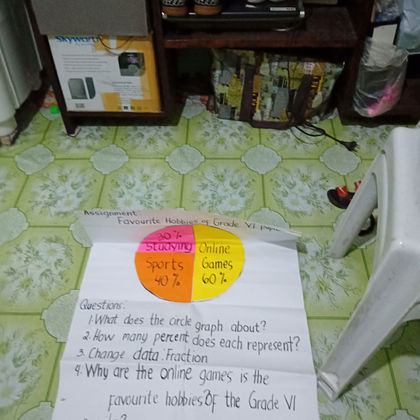 Skyworth
Assignment
Favourite Hobbies of Grade VI
30%
Studying
Online
Games
60%
Sports
40%
Questions:
1. What does the circle graph about?
2. How many percent does each represent?
3. Change data : Fraction
4. Why are the online games is the
favourite hobbies of the Grade VI